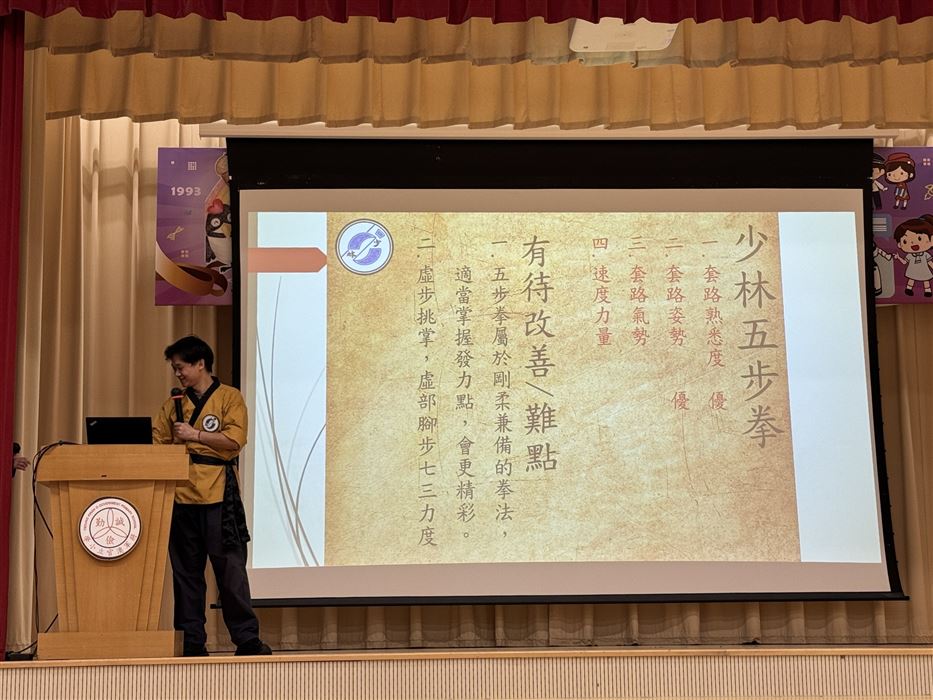 少林五步拳
一. 套路熟悉度 優
二. 套路姿勢 優
三. 套路氣勢
四. 速度力量
有待改善/難點
一. 五步拳屬於剛柔兼備的拳法，
適當掌握發力點，會更精彩。
二. 虛步挑掌，虛部腳步七三力度
1993
誠
勤
儉